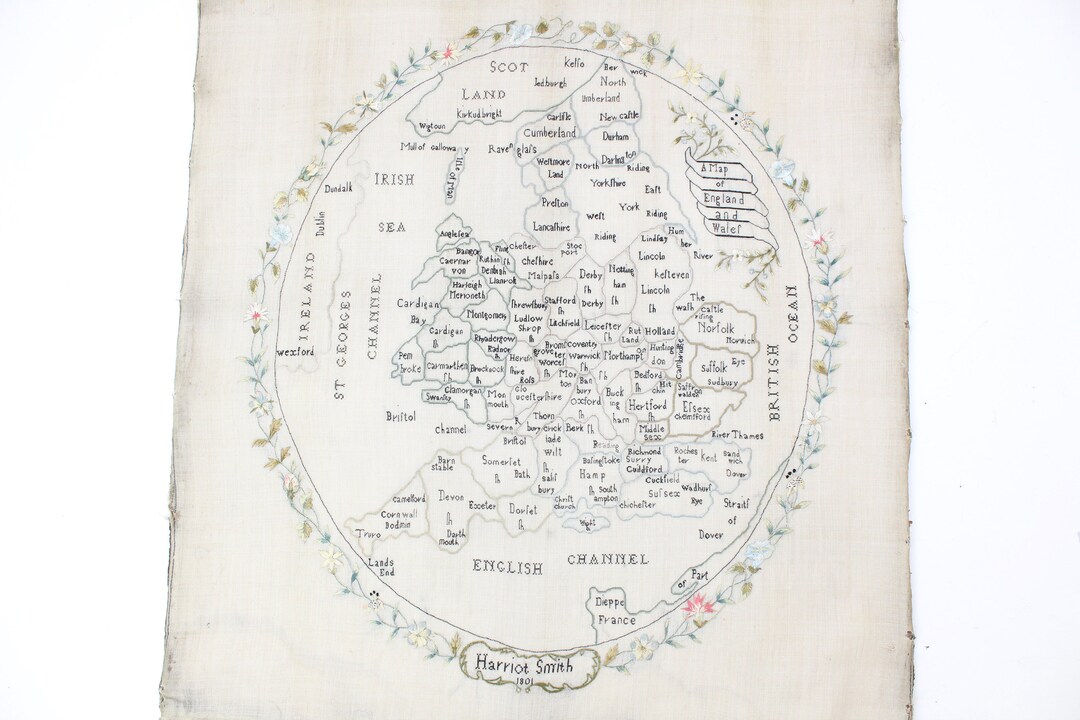 SCOT
LAND
Kelſo
Ber
wick
Jedburgh
North
umberland
Kirkudbright
Wigtoun
Carliſle
New caſtle
Cumberland
Durham
Mull of Galloway
Isle of Man
Raven glaſs
Darling ton
A Map
of
England
and
Waleſ
Weſtmore
Land
North Riding
Yorkſhire
Eaſt
York Riding
weſt
Riding
IRISH
SEA
Dundalk
Dublin
IRELAND
Wexford
ST GEORGES
CHANNEL
Preſton
Lancaſhire
Angleſea
Bangor
Caernar
von
Flint ſh
Ruthin
Denbigh
Cheſter
cheſhire
Malpaſs
Stoc
port
Lindſey
Hum
ber
River
Lincoln
keſteven
Lincoln
ſh
Notting
ham
ſh
Derby
ſh
Derby
Harleigh
Merioneth
Llanroſt
Cardigan
Bay
Montgomery
Shrewſbury
Ludlow
Shrop
ſh
Stafford
ſh
Litchfield
Leiceſter
ſh
Rut
Land
Holland
The
waſh
Caſtle
riſing
Norfolk
Norwich
BRITISH
OCEAN
Cardigan
ſh
Rhyadergow
Radnor
ſh
Hereford
ſhire
Roſs
Bromſ
grove
Worceſ
ter
ſh
Coventry
Warwick
ſh
Northampt
ſh
Hunting
don
Cambridge
Eye
Suffolk
Sudbury
Pem
broke
Carmarthen
ſh
Brecknock
ſh
Glamorgan
ſh
Swanſey
Mon
mouth
Glo
uceſterſhire
Mor
ton
Ban
bury
Oxford
ſh
Buck
ing
ham
Bedford
ſh
Hit
chin
Hertford
ſh
Saffron
walden
Eſsex
chelmſford
Middle
sex
River Thames
Briſtol
Channel
Severn R
Briſtol
Thorn
bury
Berk ſh
Reading
Wilt
ſh
saliſ
bury
Baſingſtoke
Hamp
ſh
South
ampton
Chriſt
church
Richmond
Surry
Guddford
Roches
ter
Kent
Sand
wich
Dover
Cuckfield
Suſsex
Wadhurſt
Rye
chicheſter
Wight
Barn
stable
Somerſet
ſh
Bath
Camelford
Devon
ſh
Exeter
Dorſet
ſh
Cornwall
Bodmin
Truro
Dart
mouth
Lands
End
Straitſ
of
Dover
ENGLISH CHANNEL
Dieppe
France
Part
of
Harriot Smith
1801